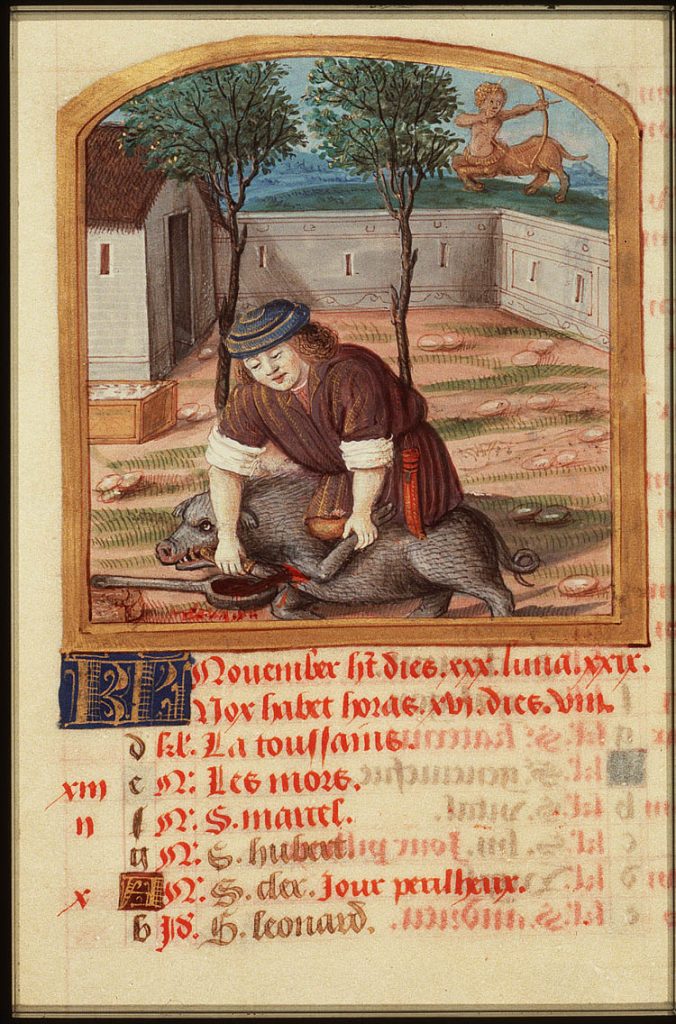 KL Nouember ht. dies. xxx. luna. xxix.
Nox habet horas. xvi. dies. viii.
d kl. La toussains.
xiii e N. Les mors.
ii f N. S. marcel.
g N. S. hubert.
x A N. S. cler. Jour perilheux.
b Jd. S. leonard.